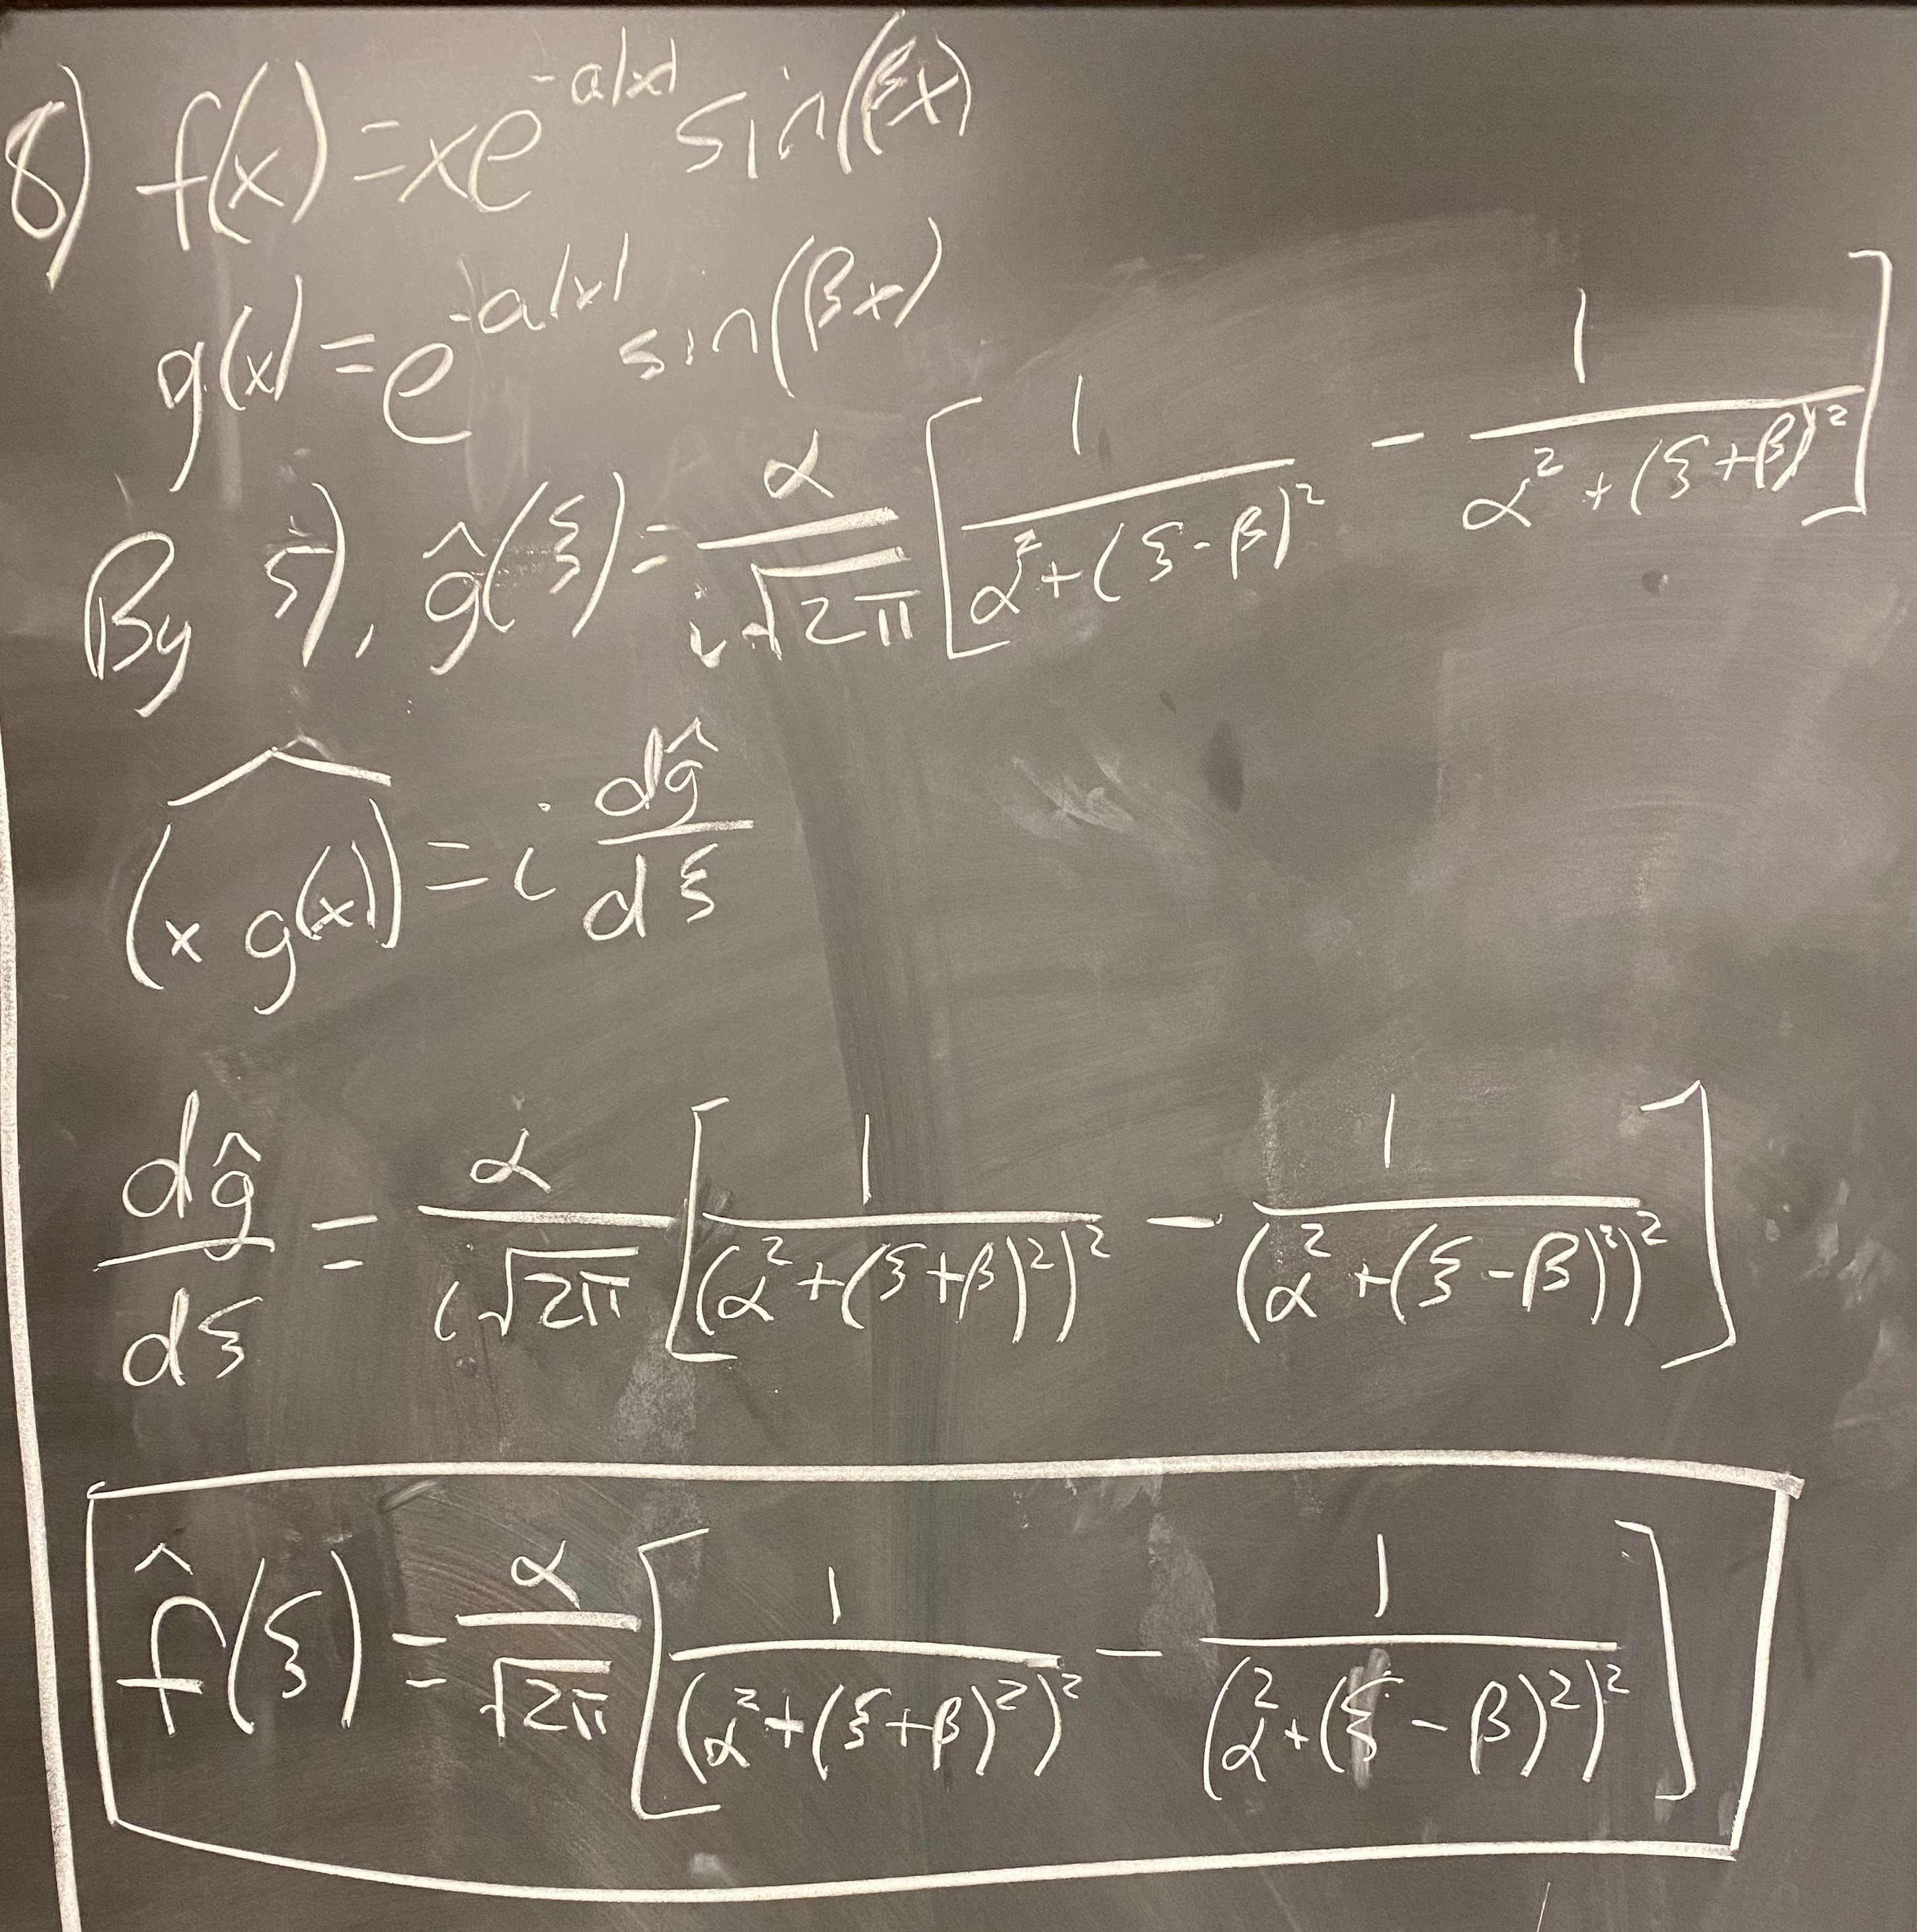 8) f(x) = xe^{-a|x|} sin(βx)
g(x) = e^{-a|x|} sin(βx)
By 5), ĝ(ξ) = α/(i√(2π)) [1/(α² + (ξ - β)²) - 1/(α² + (ξ + β)²)]
\widehat{(x g(x))} = i dĝ/dξ
dĝ/dξ = α/(i√(2π)) [1/(α² + (ξ + β)²)² - 1/(α² + (ξ - β)²)²]
f̂(ξ) = α/√(2π) [1/(α² + (ξ + β)²)² - 1/(α² + (ξ - β)²)²]